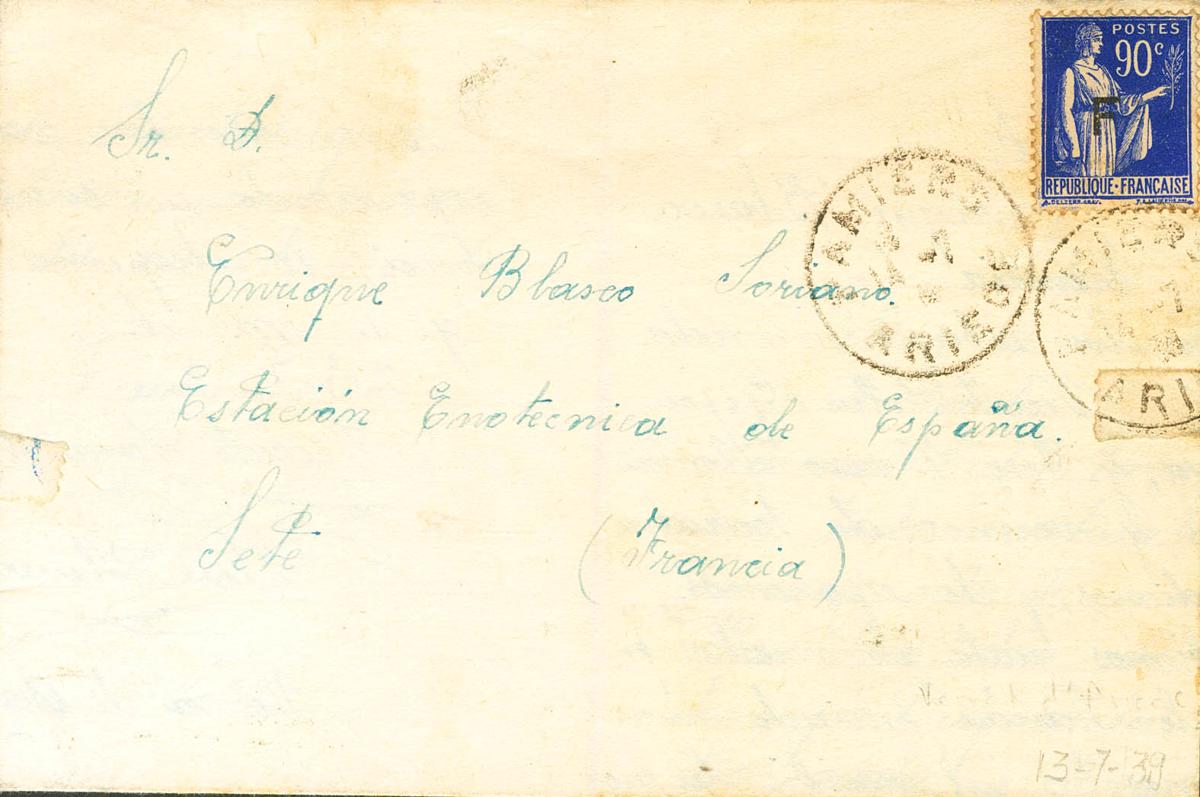 POSTES
90c
F
RÉPUBLIQUE·FRANÇAISE
PAMIERS
ARIEGE
PAMIERS
ARI
Sr. D.
Enrique Blasco Soriano.
Estación Enotecnica de España.
Sete (Francia)
13-7-39